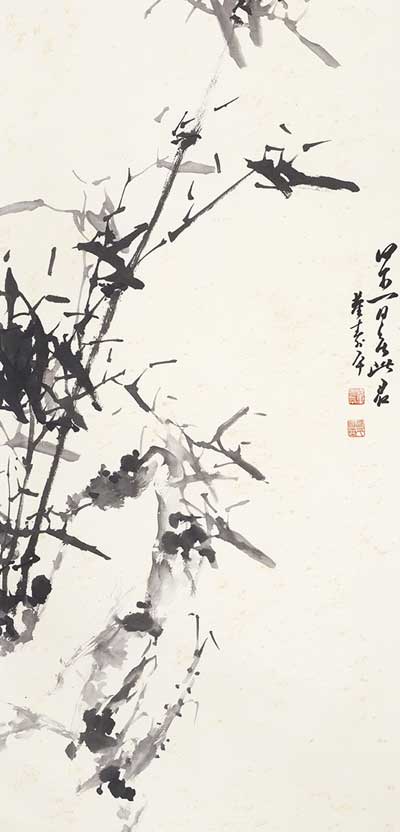 何可一日无此君
董寿平